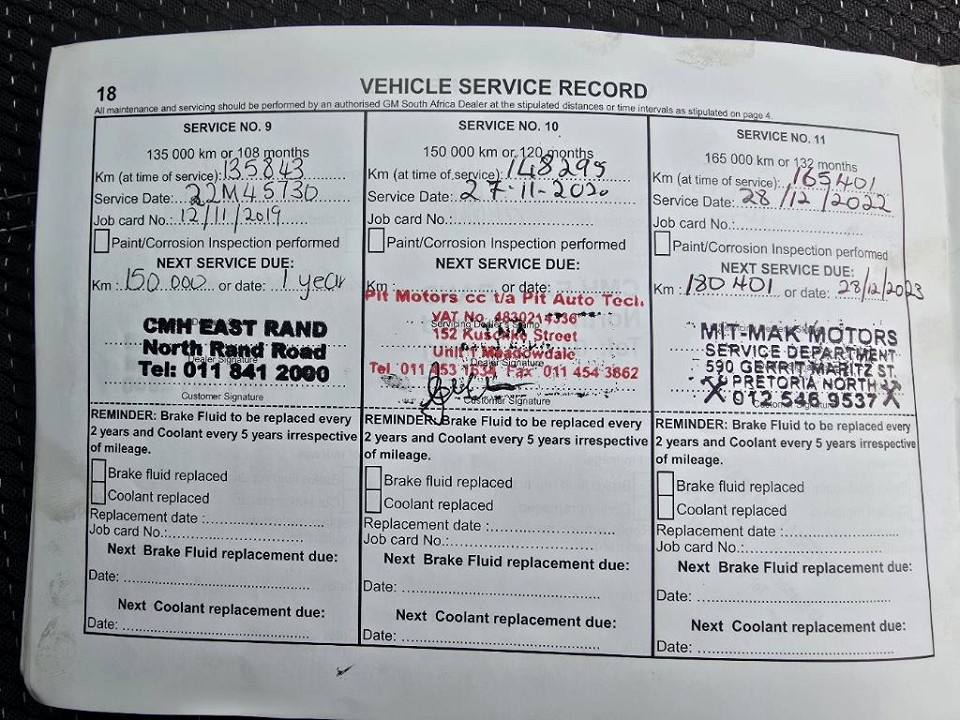 18
VEHICLE SERVICE RECORD
All maintenance and servicing should be performed by an authorised GM South Africa Dealer at the stipulated distances or time intervals as stipulated on page 4.
SERVICE NO. 9
135 000 km or 108 months
Km (at time of service):135843
Service Date: 22M45730
Job card No.: 12/11/2019
Paint/Corrosion Inspection performed
NEXT SERVICE DUE:
Km : 150 000 or date: 1 year
CMH EAST RAND
North Rand Road
Dealer Signature
Tel: 011 841 2000
Customer Signature
REMINDER: Brake Fluid to be replaced every
2 years and Coolant every 5 years irrespective
of mileage.
Brake fluid replaced
Coolant replaced
Replacement date :
Job card No.:
Next Brake Fluid replacement due:
Date:
Next Coolant replacement due:
Date:
SERVICE NO. 10
150 000 km or 120 months
Km (at time of service): 148295
Service Date: 27-11-2020
Job card No.:
Paint/Corrosion Inspection performed
NEXT SERVICE DUE:
Km : or date:
Pit Motors cc t/a Pit Auto Tech.
VAT No. 4830214336
Servicing Dealer's Stamp
152 Kuschke Street
Unit 1 Meadowdale
Dealer Signature
Tel 011 453 1634 Fax 011 454 3862
Customer Signature
REMINDER: Brake Fluid to be replaced every
2 years and Coolant every 5 years irrespective
of mileage.
Brake fluid replaced
Coolant replaced
Replacement date :
Job card No.:
Next Brake Fluid replacement due:
Date:
Next Coolant replacement due:
Date:
SERVICE NO. 11
165 000 km or 132 months
Km (at time of service): 165401
Service Date: 28/12/2022
Job card No.:
Paint/Corrosion Inspection performed
NEXT SERVICE DUE:
Km : 180 401 or date: 28/12/2023
MIT-MAK MOTORS
SERVICE DEPARTMENT
590 GERRIT MARITZ ST.
PRETORIA NORTH
012 546 9537
REMINDER: Brake Fluid to be replaced every
2 years and Coolant every 5 years irrespective
of mileage.
Brake fluid replaced
Coolant replaced
Replacement date :
Job card No.:
Next Brake Fluid replacement due:
Date:
Next Coolant replacement due:
Date: